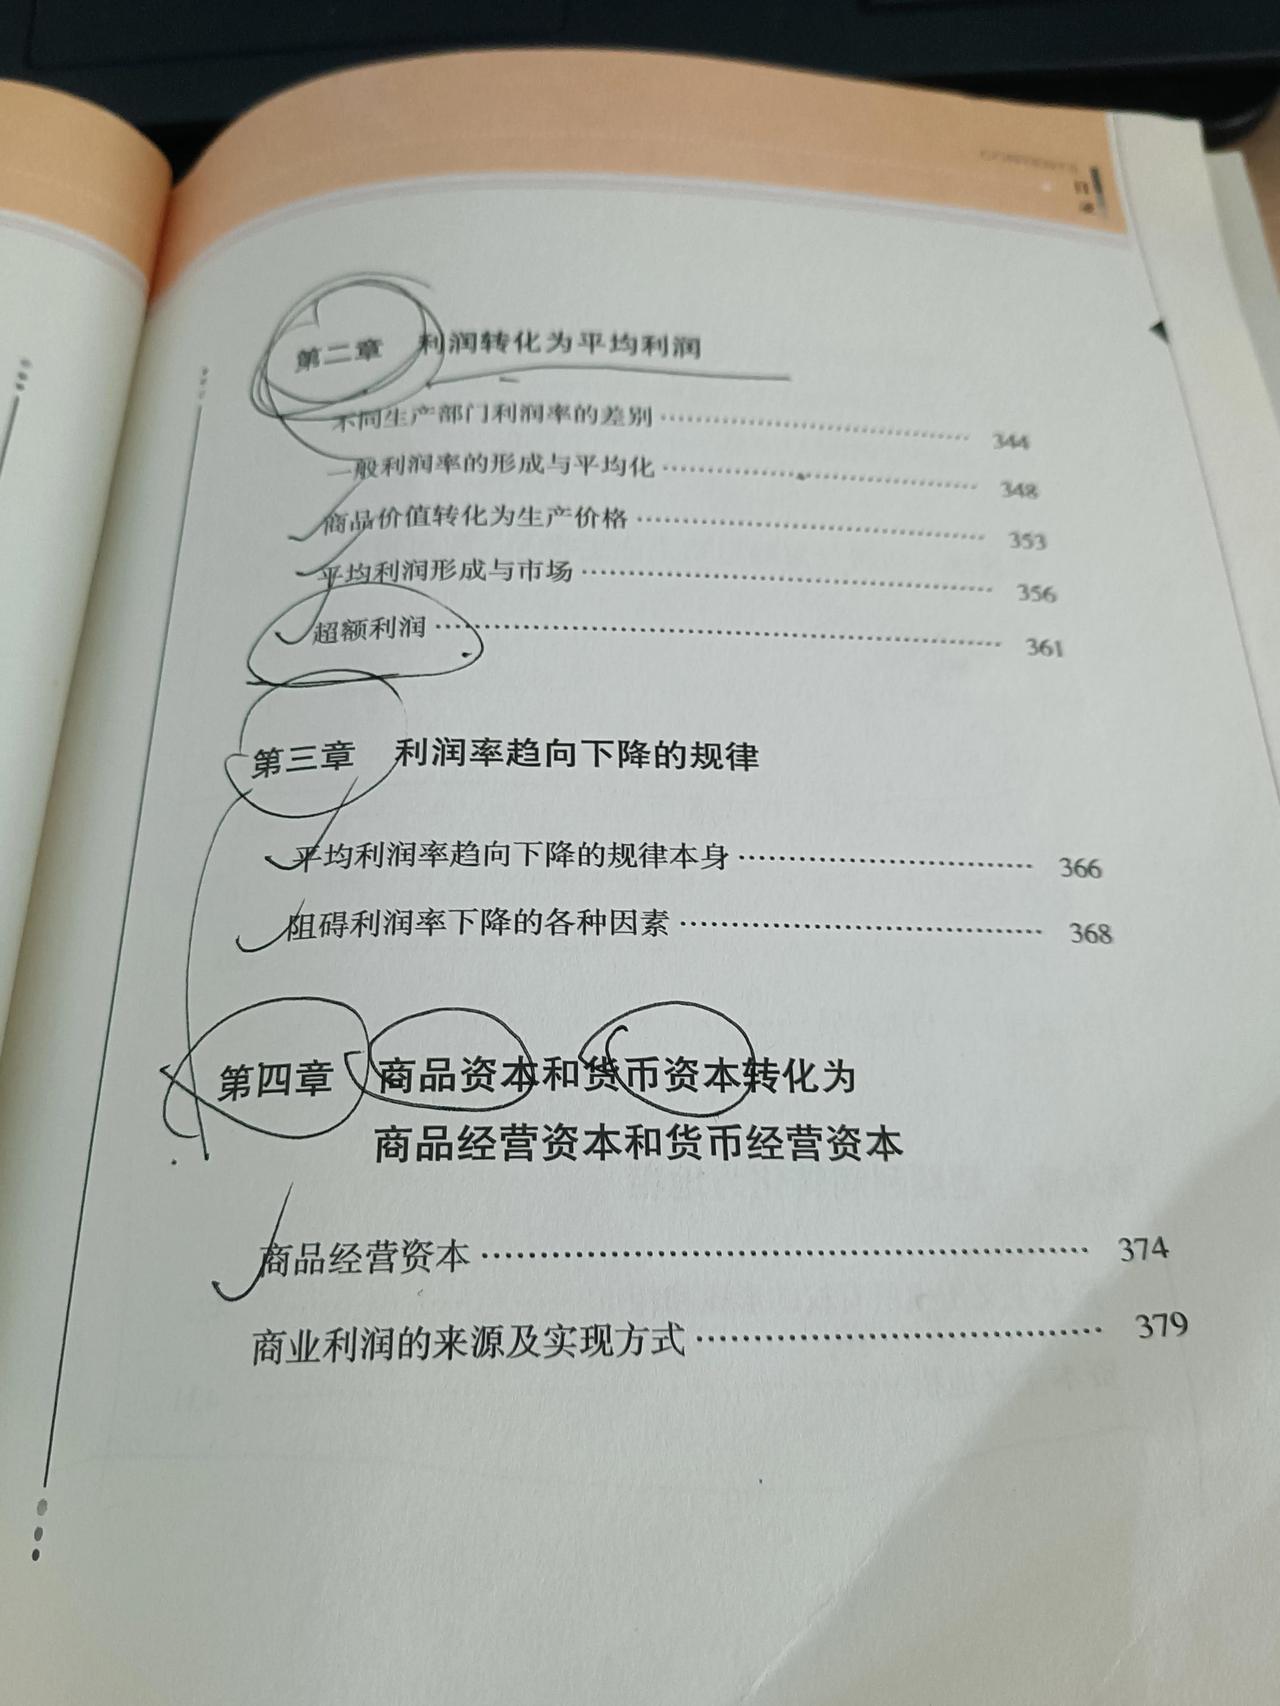 CONTENTS
目录
第二章 利润转化为平均利润
不同生产部门利润率的差别 344
一般利润率的形成与平均化 348
商品价值转化为生产价格 353
平均利润形成与市场 356
超额利润 361
第三章 利润率趋向下降的规律
平均利润率趋向下降的规律本身 366
阻碍利润率下降的各种因素 368
第四章 商品资本和货币资本转化为
商品经营资本和货币经营资本
商品经营资本 374
商业利润的来源及实现方式 379